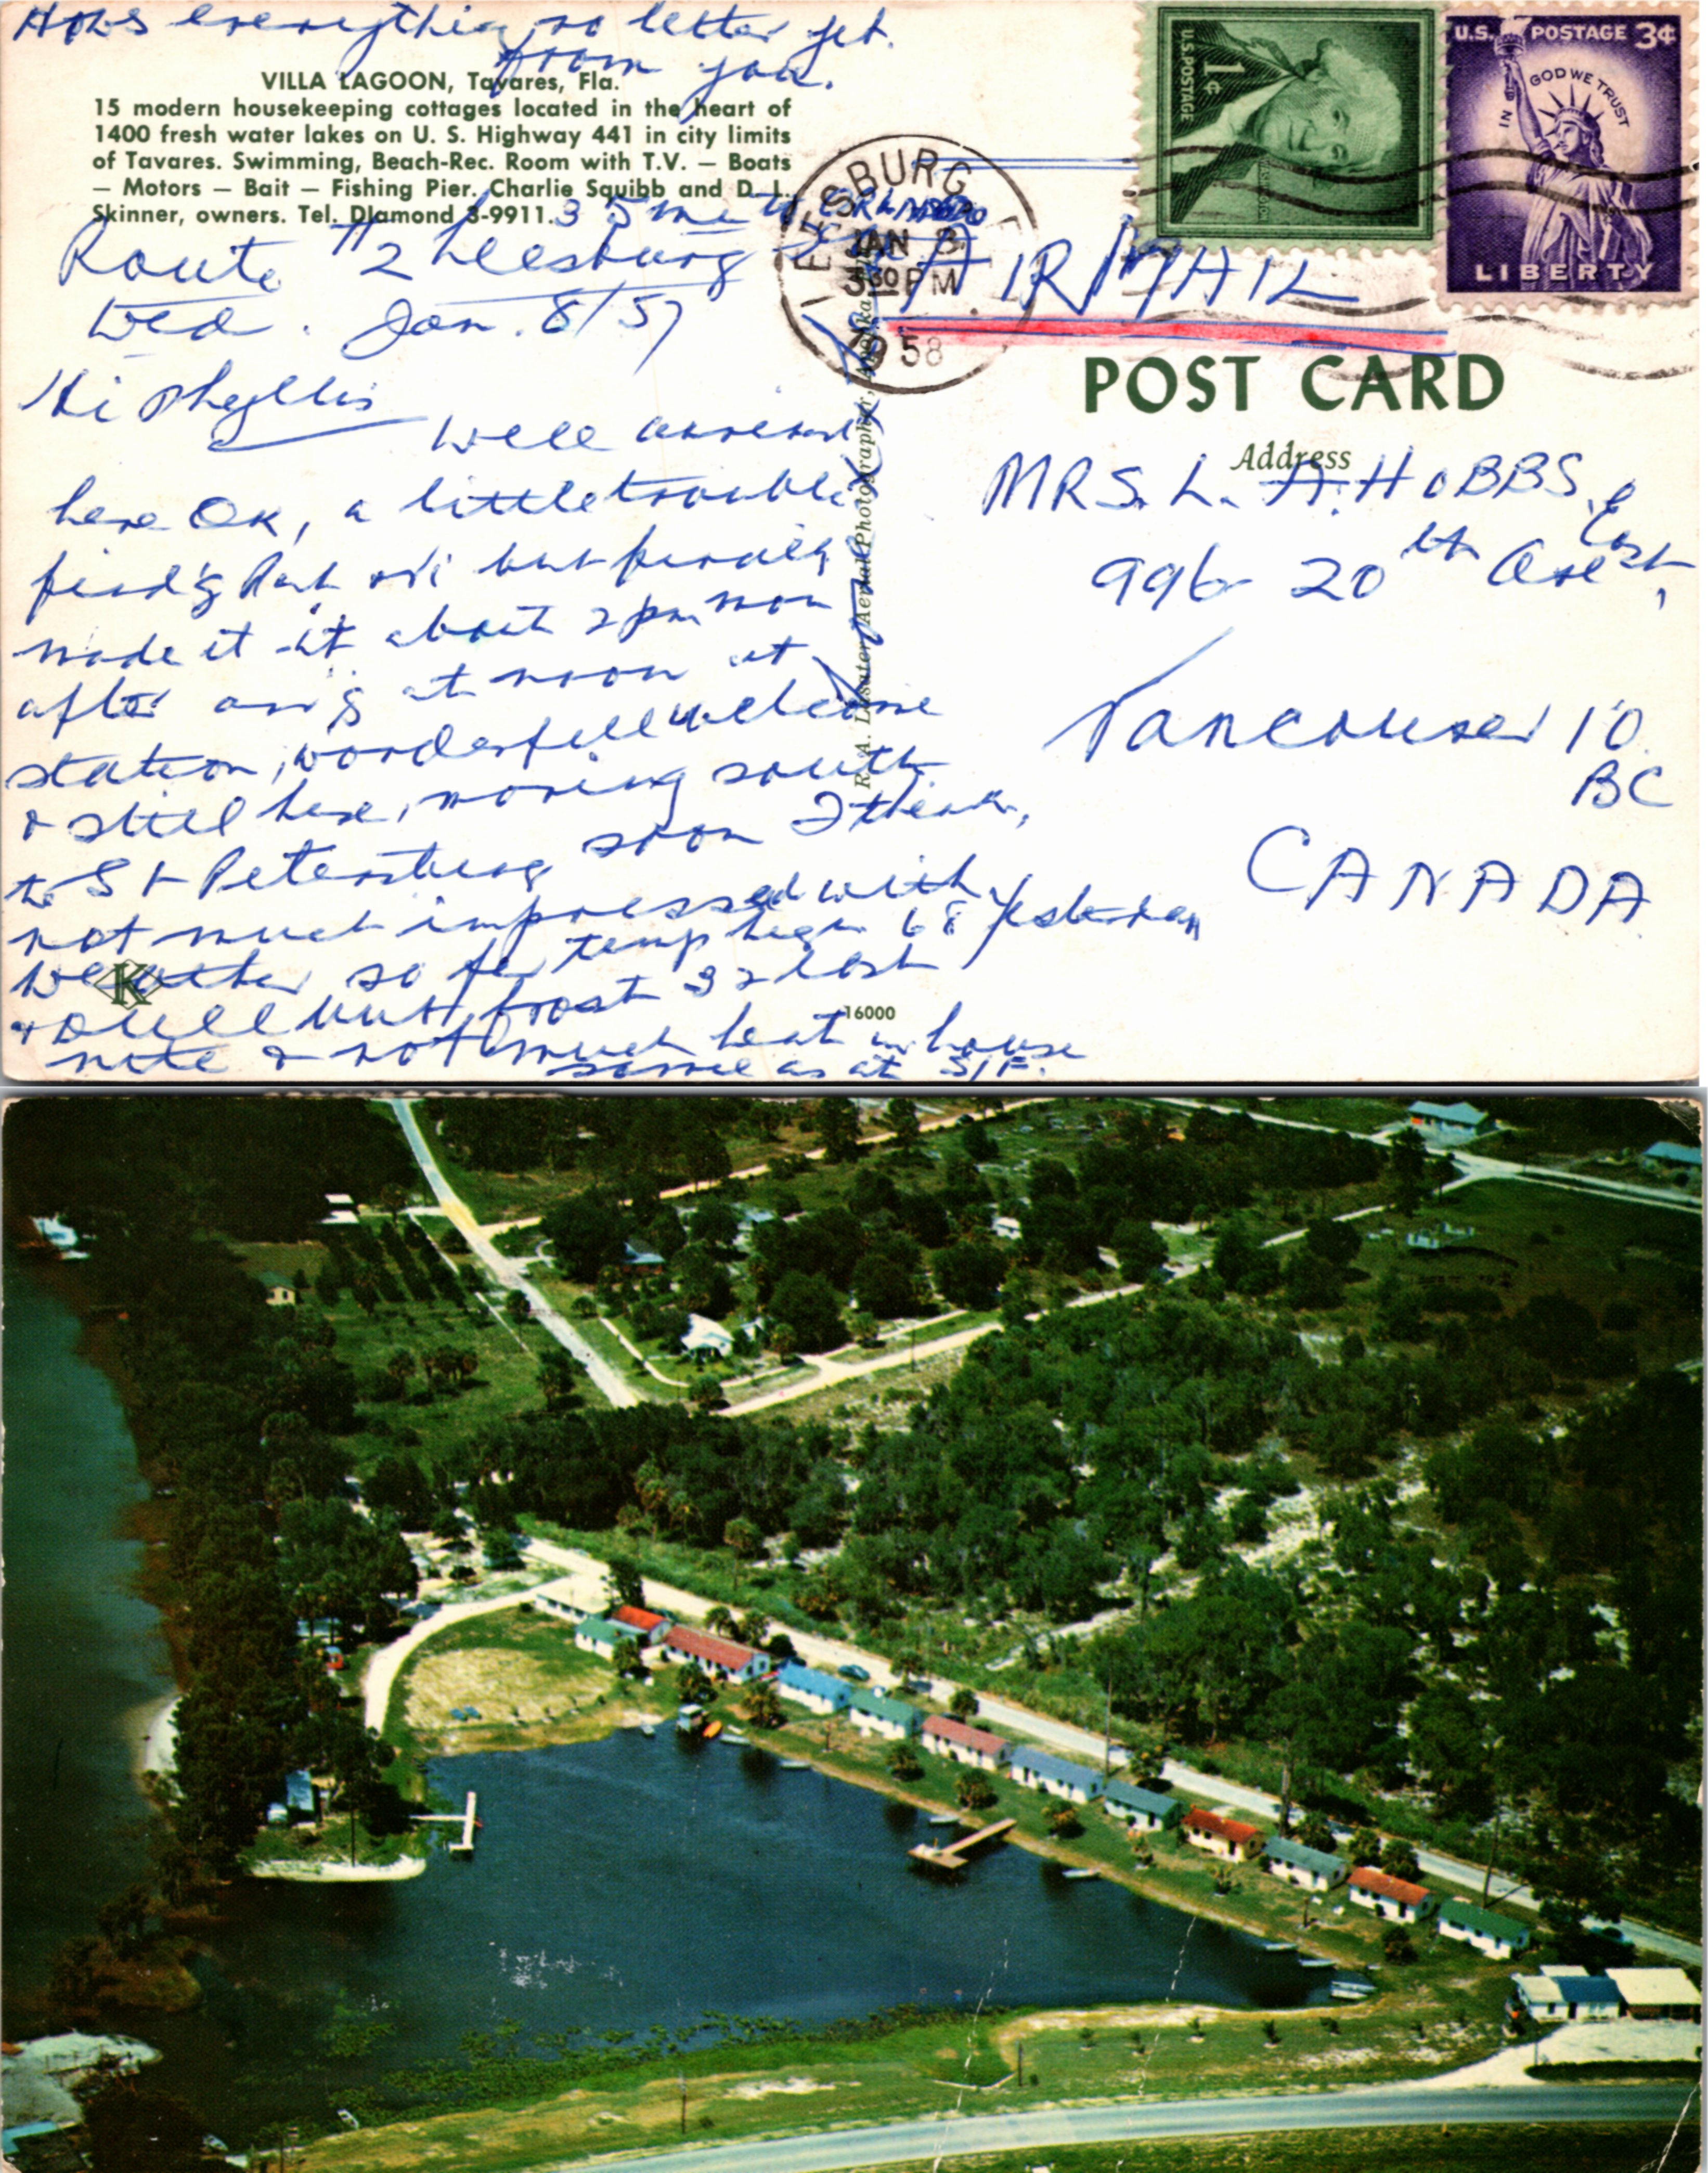 Hows everything no letter yet.
from you.
VILLA LAGOON, Tavares, Fla.
15 modern housekeeping cottages located in the heart of
1400 fresh water lakes on U. S. Highway 441 in city limits
of Tavares. Swimming, Beach-Rec. Room with T.V. — Boats
— Motors — Bait — Fishing Pier. Charlie Squibb and D. L.
Skinner, owners. Tel. DIamond 3-9911.
35 mi to ORLANDO
Route #2 Leesburg
Wed. Jan. 8/57
Hi Phyllis
Well arrived
here OK, a little trouble
find'g but finally
made it at about 2 pm
after arr'g at noon at
station, wonderfull welcome
& still here, moving south
to St Petersburg soon I think,
not much impressed with
weather so far temp high 68 yesterday
& dull but frost 32 last
nite & not much heat in house
same as at S/F.
R. A. Lisater, Aerial Photographer, Apopka,
K
16000
LEESBURG
JAN 8
5 30 PM
1958
U.S. POSTAGE
1¢
U.S. POSTAGE 3¢
IN GOD WE TRUST
LIBERTY
AIR MAIL
POST CARD
Address
MRS. L. A. HOBBS,
996 20th Ave East,
Vancouver 10
BC
CANADA